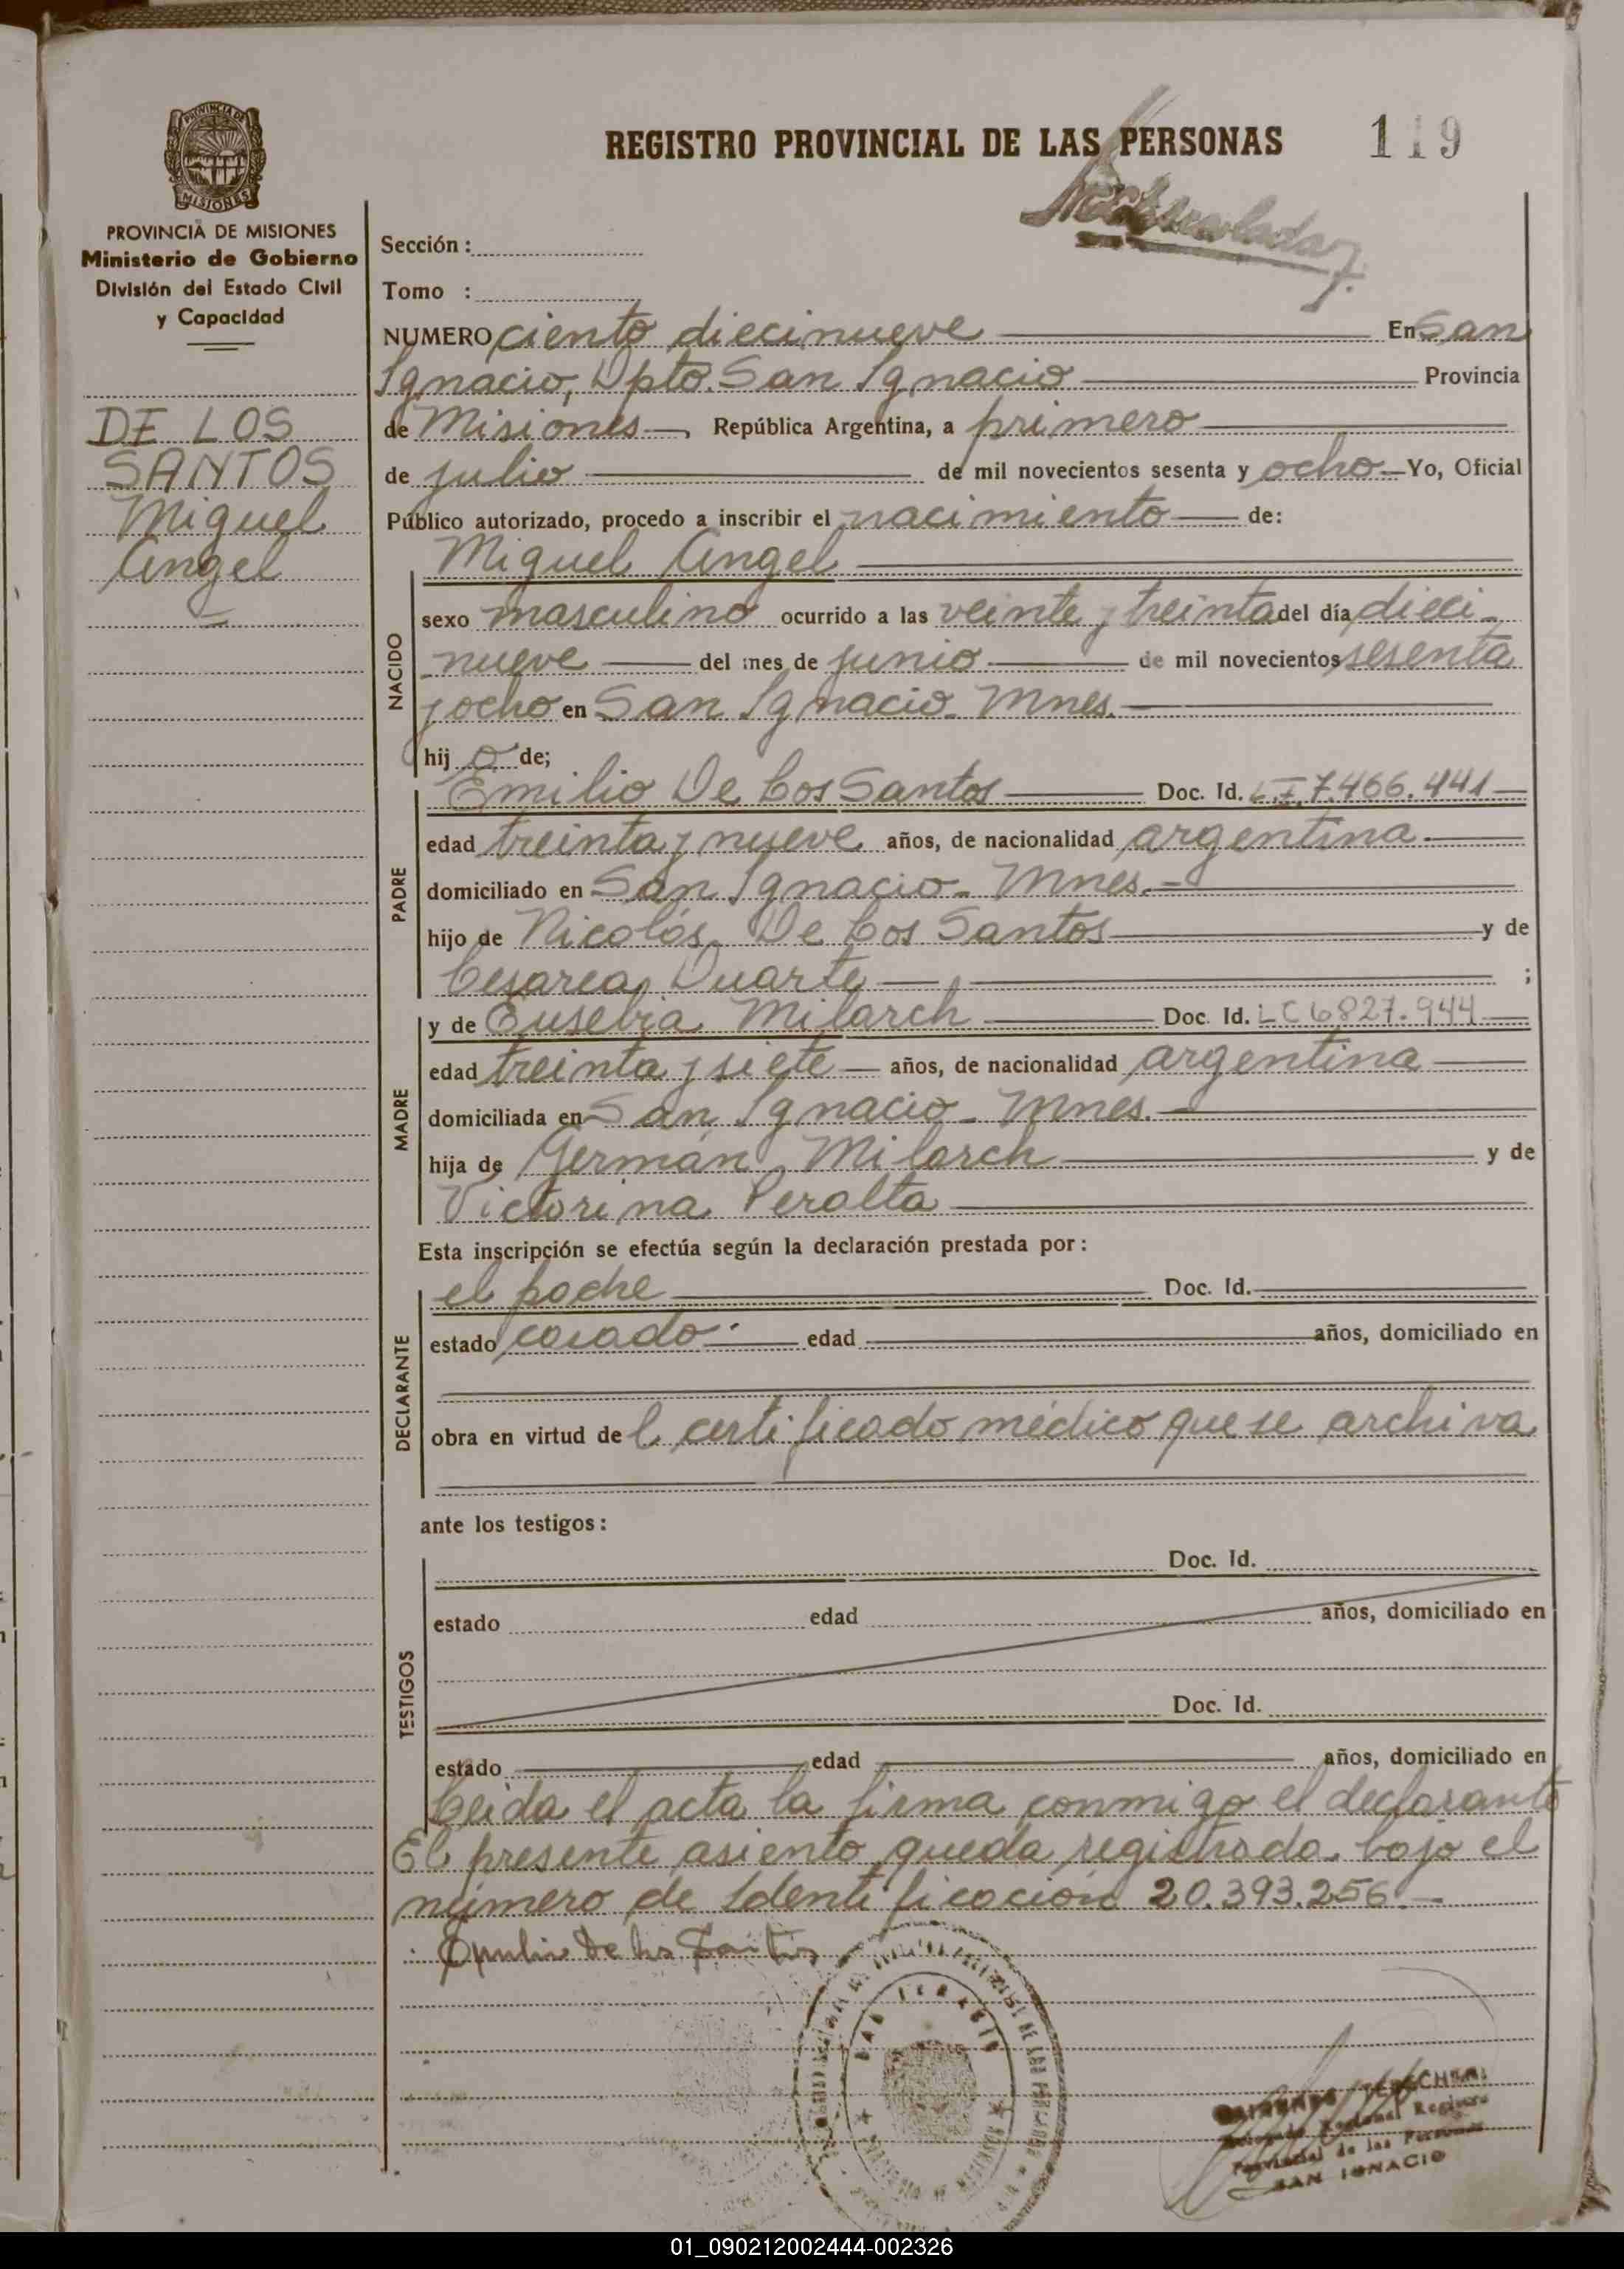 PROVINCIA DE MISIONES
REGISTRO PROVINCIAL DE LAS PERSONAS 119
PROVINCIA DE MISIONES
Ministerio de Gobierno
División del Estado Civil
y Capacidad
DE LOS
SANTOS
Miguel
Angel
Sección:
Tomo :
NUMERO ciento diecinueve En San
Ignacio, Dpto. San Ignacio Provincia
de Misiones, República Argentina, a primero
de julio de mil novecientos sesenta y ocho Yo, Oficial
Público autorizado, procedo a inscribir el nacimiento de:
NACIDO
Miguel Angel
sexo masculino ocurrido a las veinte y treinta del día dieci-
nueve del mes de junio de mil novecientos sesenta
y ocho en San Ignacio - Mnes.
hijo de;
PADRE
Emilio De Los Santos Doc. Id. L.E. 7.466.441
edad treinta y nueve años, de nacionalidad argentina
domiciliado en San Ignacio - Mnes.
hijo de Nicolás De Los Santos y de
Cesarea Duarte ;
MADRE
y de Eusebia Milarch Doc. Id. LC 6827.944
edad treinta y siete años, de nacionalidad argentina
domiciliada en San Ignacio - Mnes.
hija de Germán Milarch y de
Victorina Peralta
Esta inscripción se efectúa según la declaración prestada por:
DECLARANTE
el padre Doc. Id.
estado casado edad años, domiciliado en
obra en virtud del certificado médico que se archiva
ante los testigos:
TESTIGOS
Doc. Id.
estado edad años, domiciliado en
Doc. Id.
estado edad años, domiciliado en
Leida el acta la firma conmigo el declarante
El presente asiento queda registrado bajo el
número de Identificación 20.393.256.-
Emilio De los Santos
SAN IGNACIO
Delegado Regional Registro
Provincial de las Personas
SAN IGNACIO
01_090212002444-002326